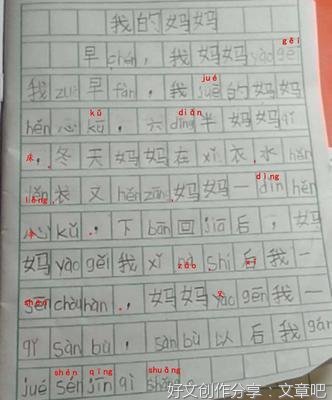 我的妈妈
早chén,我妈妈yào gěi
我zuò早fàn,我jué的妈妈
hěn心kǔ,六diǎn半妈妈qǐ
床,冬天妈妈在xǐ衣,水hěn
lěng衣又hěn zāng,妈妈一dìn hěn
心kǔ,下bān回jiā后,妈
妈yào gěi我xǐ zǎo shí后我一
shēn chòu hàn,妈妈yào gēn我一
qǐ sàn bù,sàn bù以后我gǎn
jué shén jīn qì shuǎng
好文创作分享:文章吧